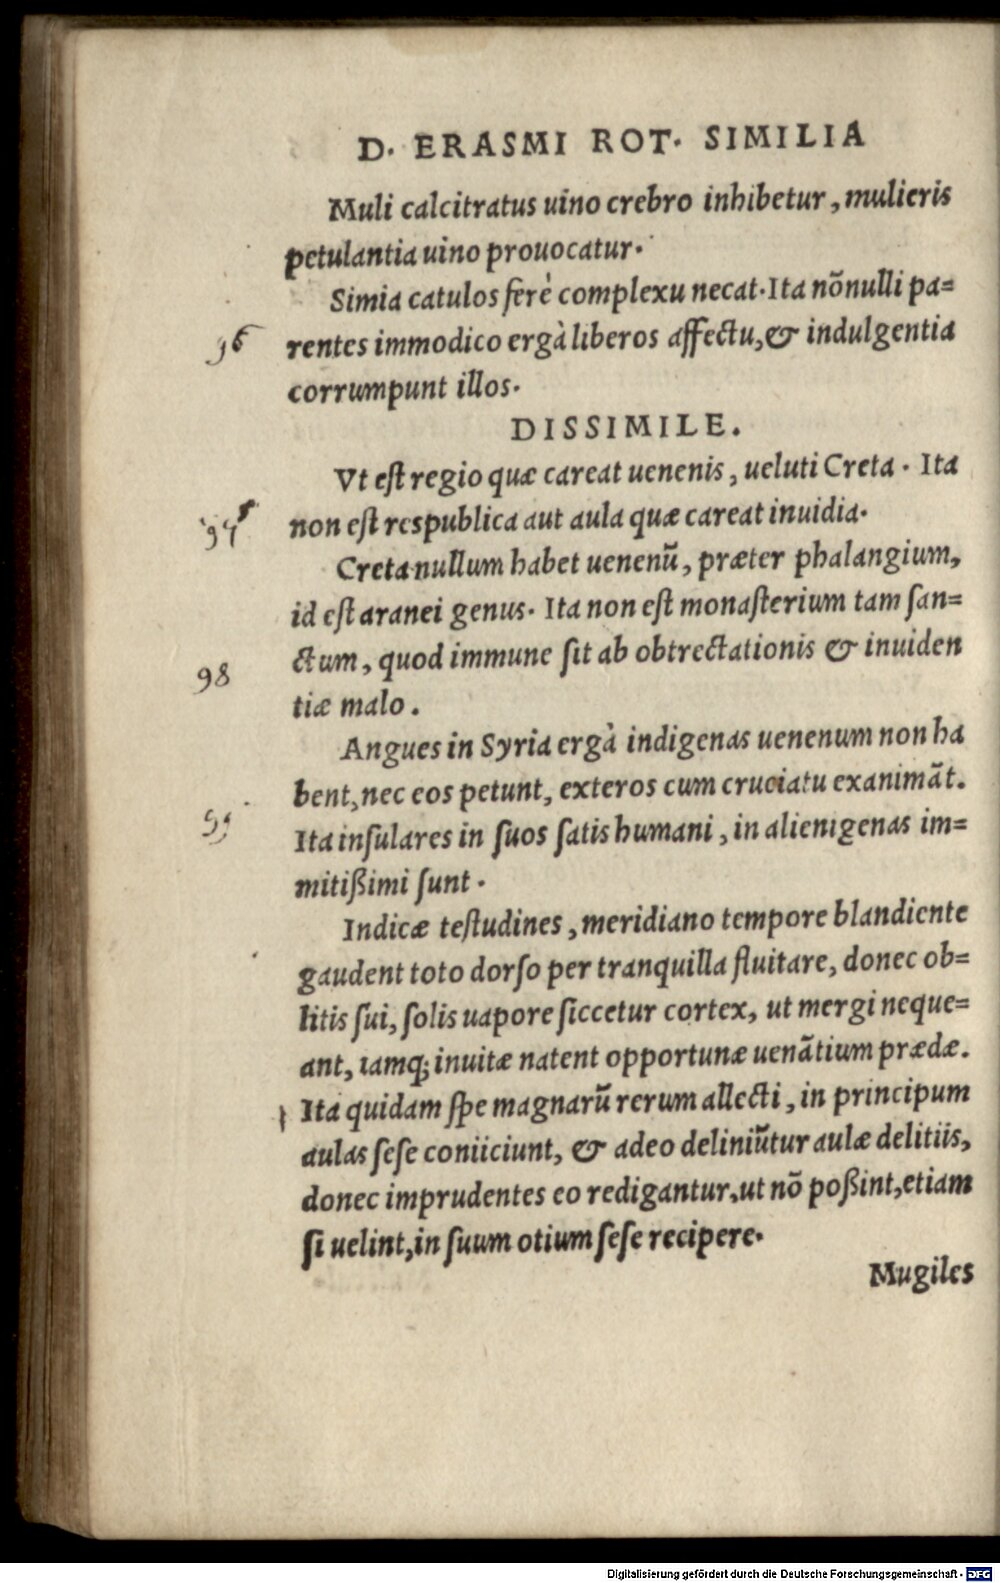 D. ERASMI ROT. SIMILIA
Muli calcitratus uino crebro inhibetur, mulieris
petulantia uino prouocatur.
Simia catulos ferè complexu necat. Ita nõnulli pa=
96
rentes immodico ergà liberos affectu, & indulgentia
corrumpunt illos.
DISSIMILE.
Vt est regio quæ careat uenenis, ueluti Creta. Ita
non est respublica aut aula quæ careat inuidia.
Creta nullum habet uenenũ, præter phalangium,
id est aranei genus. Ita non est monasterium tam san=
ctum, quod immune sit ab obtrectationis & inuiden
98
tiæ malo.
Angues in Syria ergà indigenas uenenum non ha
bent, nec eos petunt, exteros cum cruciatu exanimãt.
Ita insulares in suos satis humani, in alienigenas im=
mitißimi sunt.
Indicæ testudines, meridiano tempore blandiente
gaudent toto dorso per tranquilla fluitare, donec ob=
litis sui, solis uapore siccetur cortex, ut mergi neque=
ant, iamq; inuitæ natent opportunæ uenãtium prædæ.
Ita quidam spe magnarũ rerum allecti, in principum
aulas sese coniiciunt, & adeo deliniũtur aulæ delitiis,
donec imprudentes eo redigantur, ut nõ poßint, etiam
si uelint, in suum otium sese recipere.
Mugiles
Digitalisierung gefördert durch die Deutsche Forschungsgemeinschaft - DFG